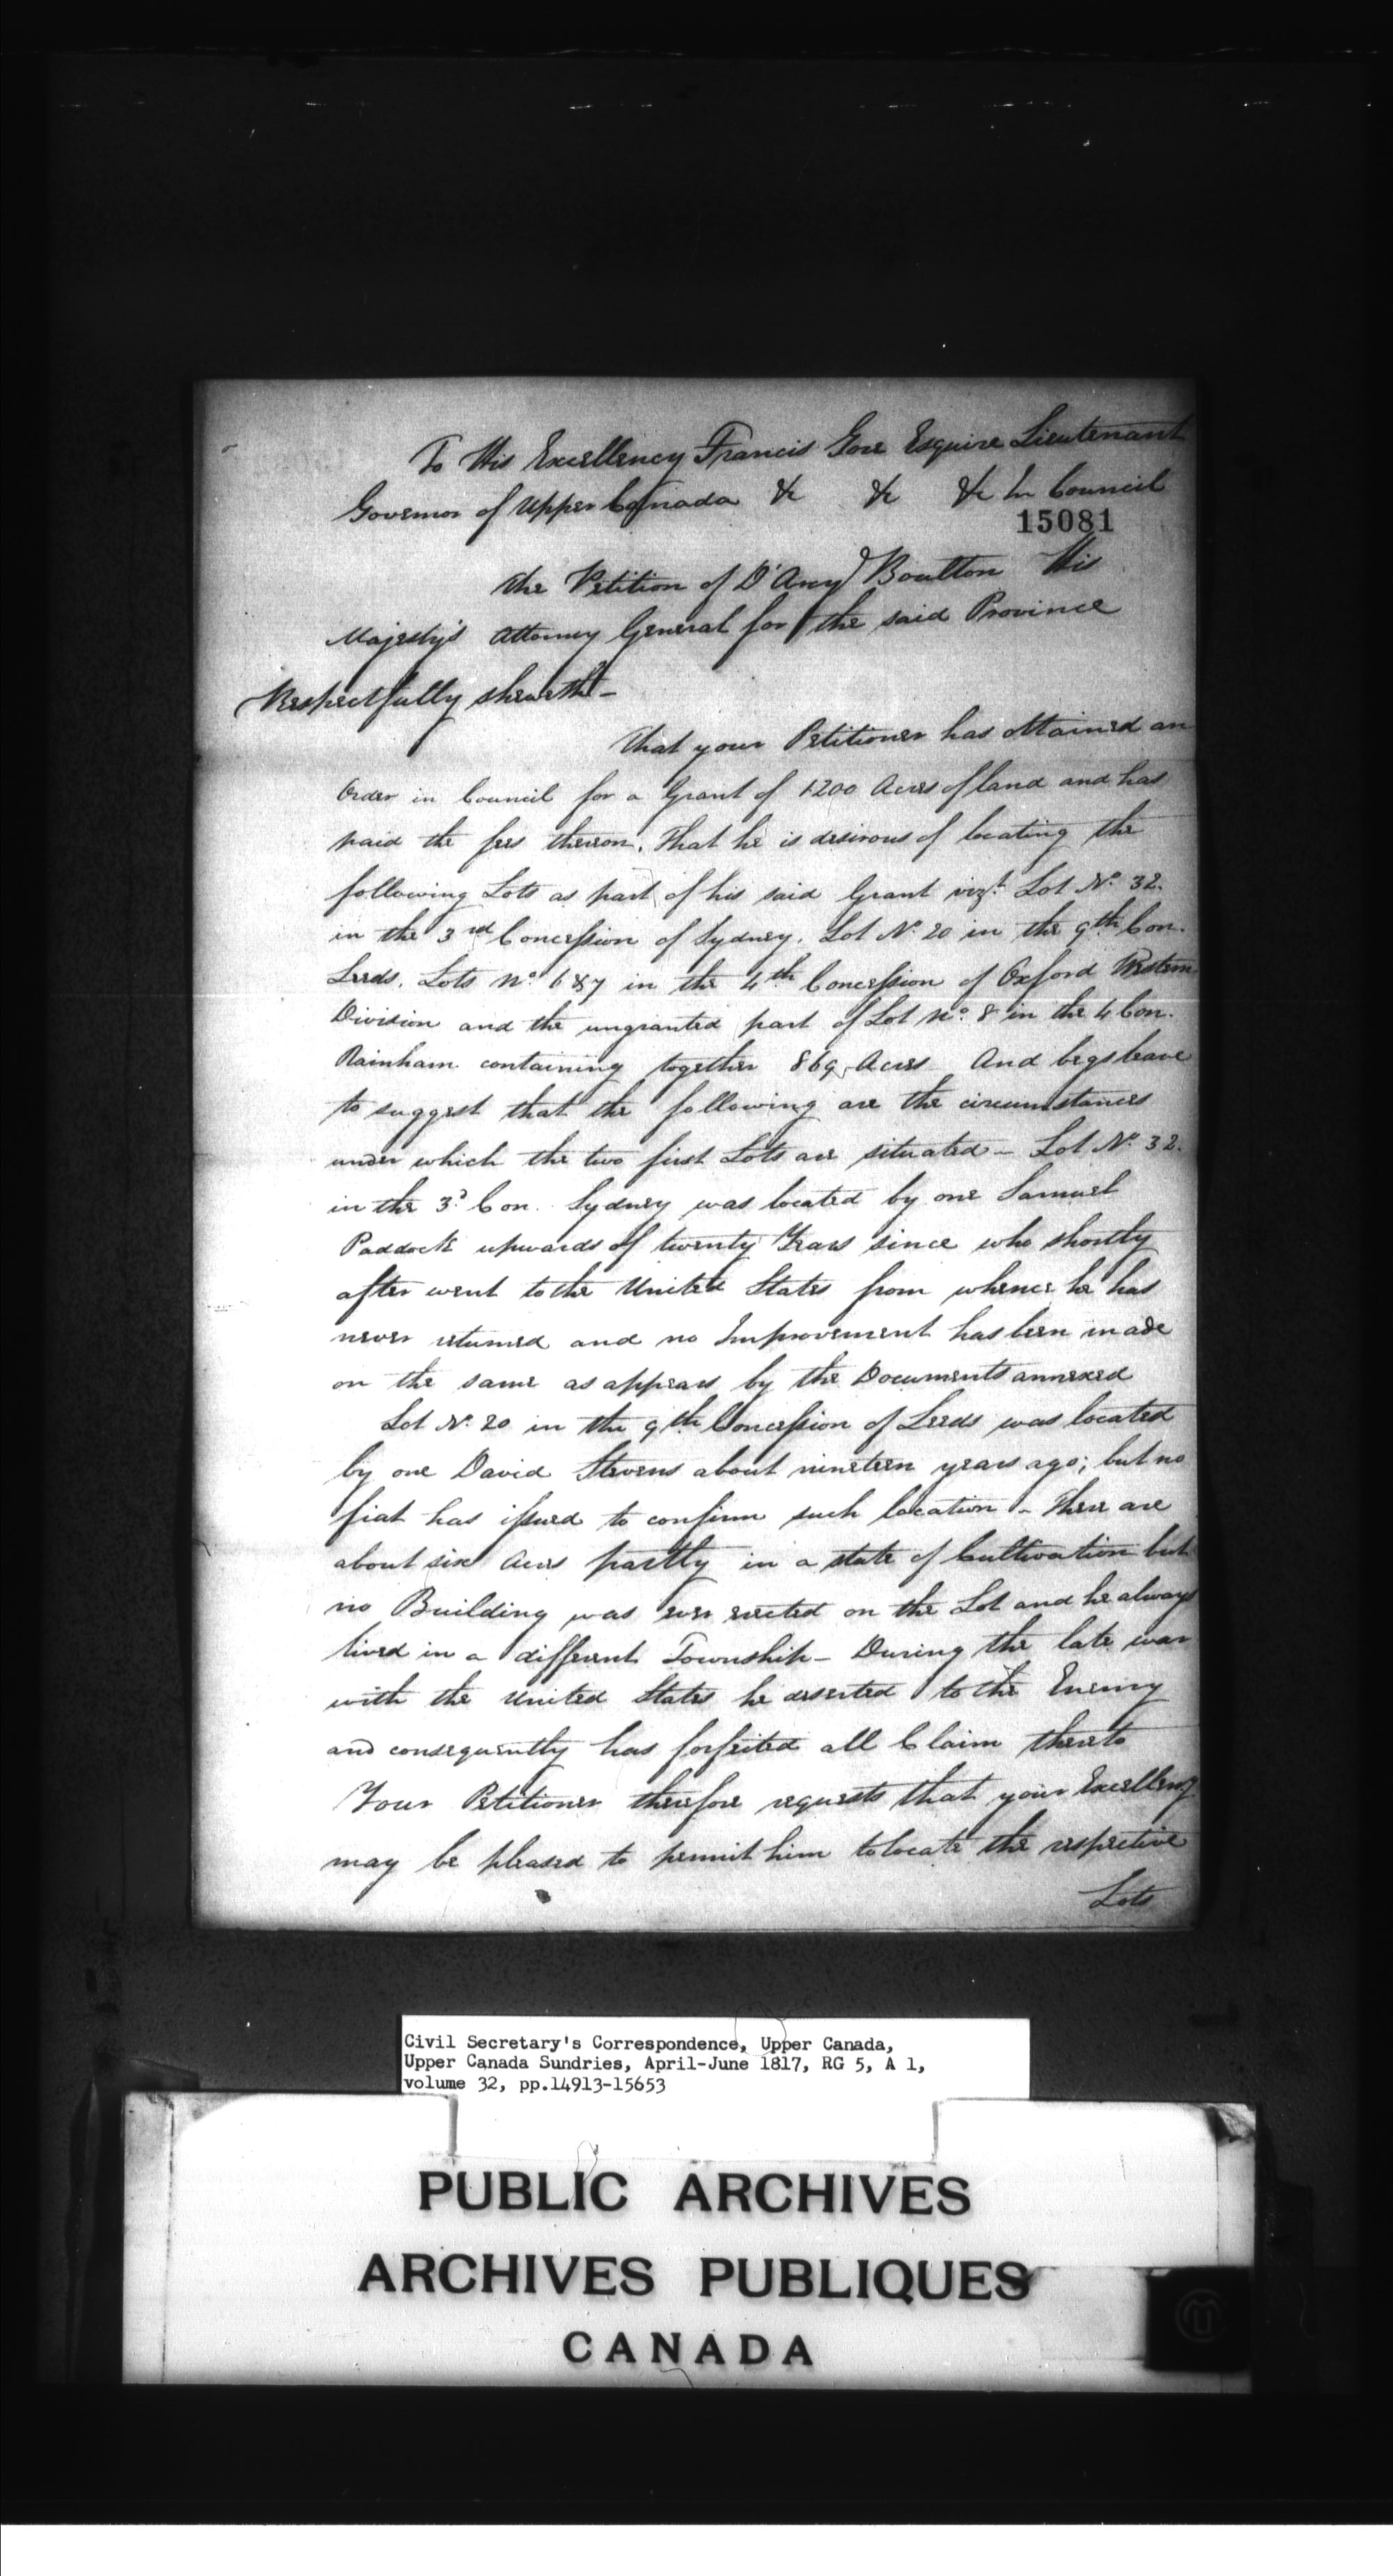 To His Excellency Francis Gore Esquire Lieutenant
Governor of Upper Canada & & & In Council
15081
The Petition of D'Arcy Boulton His
Majesty's Attorney General for the said Province
Respectfully sheweth-
That your Petitioner has obtained an
Order in Council for a Grant of 1200 Acres of land and has
paid the fees thereon. That he is desirous of locating the
following Lots as part of his said Grant vizt. Lot No. 32.
in the 3rd Concession of Sydney. Lot No. 20 in the 9th Con.
Leeds. Lots No. 6 & 7 in the 4th Concession of Oxford Western
Division and the ungranted part of Lot No. 8 in the 4 Con.
Rainham containing together 869 Acres And begs leave
to suggest that the following are the circumstances
under which the two first Lots are situated - Lot No. 32.
in the 3d Con. Sydney was located by one Samuel
Paddock upwards of twenty Years since who shortly
after went to the United States from whence he has
never returned and no Improvement has been made
on the same as appears by the Documents annexed
Lot No. 20 in the 9th Concession of Leeds was located
by one David Stevens about nineteen years ago; but no
fiat has issued to confirm such location - There are
about six Acres partly in a state of Cultivation but
no Building was ever erected on the Lot and he always
lived in a different Township - During the late war
with the United States he deserted to the Enemy
and consequently has forfeited all Claim thereto
Your Petitioner therefore requests that your Excellency
may be pleased to permit him to locate the respective
Lots
Civil Secretary's Correspondence, Upper Canada,
Upper Canada Sundries, April-June 1817, RG 5, A 1,
volume 32, pp.14913-15653
PUBLIC ARCHIVES
ARCHIVES PUBLIQUES
CANADA